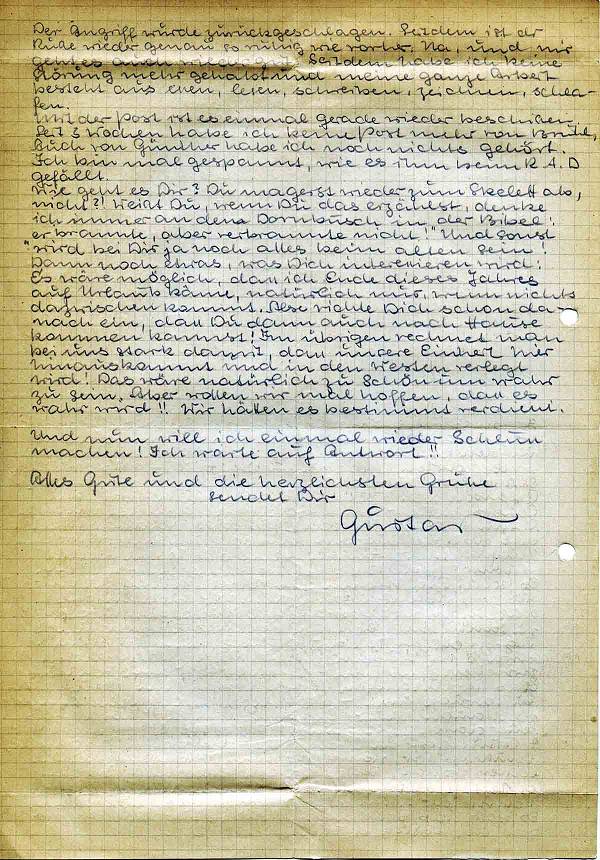 Der Angriff wurde zurückgeschlagen. Seitdem ist dr
Ruhe wieder genau so ruhig wie vorher. Na, und mir
geht es auch wieder gut. Seitdem habe ich keine
Störung mehr gehabt und meine ganze Arbeit
besteht aus essen, lesen, schreiben, zeichnen, schla-
fen.
Mit der Post ist es einmal gerade wieder beschissen.
Seit 3 Wochen habe ich keine Post mehr von
Auch von Günther habe ich noch nichts gehört.
Ich bin mal gespannt, wie es ihm beim R.A.D
gefällt.
Wie geht es Dir? Du magerst wieder zum Skelett ab,
nicht?! Weißt Du, wenn Du das erzählst, denke
ich immer an denn Dornbusch in der Bibel:
er brannte, aber verbrannte nicht!" Und sonst
wird bei Dir ja noch alles beim alten sein!
Dann noch etwas, was Dich interessieren wird:
Es wäre möglich, daß ich Ende dieses Jahres
auf Urlaub käme, natürlich nur, wenn nichts
dazwischen kommt. Also richte Dich schon da-
nach ein, daß Du dann auch nach Hause
kommen kannst! Im übrigen rechnet man
bei uns stark damit, daß unsere Einheit hier
herauskommt und in den Westen verlegt
wird! Das wäre natürlich zu schön um wahr
zu sein. Aber wollen wir mal hoffen, daß es
wahr wird!! Wir hätten es bestimmt verdient.
Und nun will ich einmal wieder Schluß
machen! Ich warte auf Antwort!!
Alles Gute und die herzlichsten Grüße
sendet Dir
Gustav